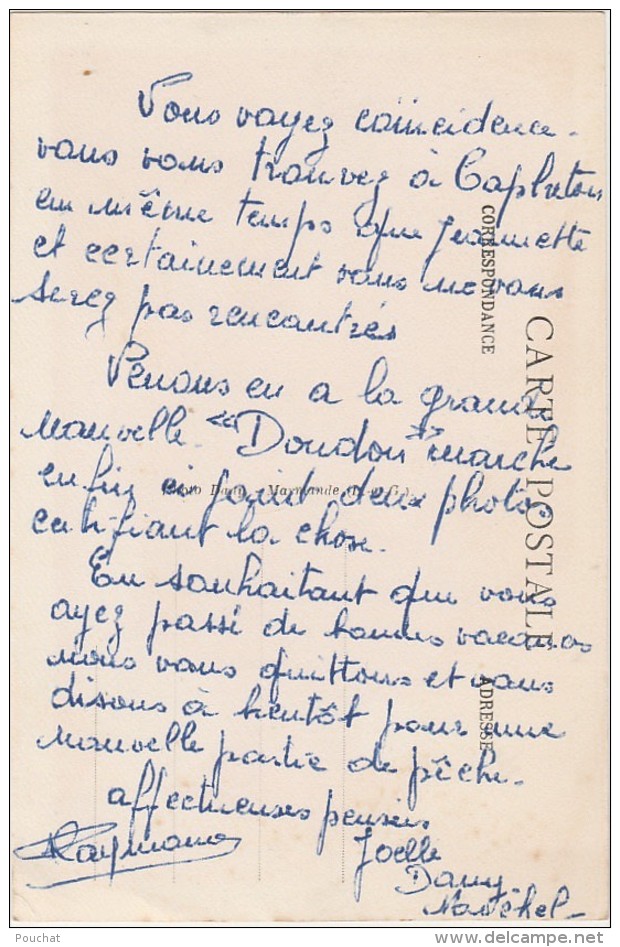 Vous voyez coïncidence.
vous vous trouvez à Capbreton
en même temps que Jeannette
et certainement vous ne vous
serez pas rencontrés
Venons en a la grande
nouvelle. "Doudou" marche
enfin ci joint deux photos
certifiant la chose.
En souhaitant que vous
ayez passé de bonnes vacances
nous vous quittons et vous
disons à bientôt pour une
nouvelle partie de pêche.
affectueuses pensées
Raymond
Joelle
Dany
CORRESPONDANCE
CARTE POSTALE
ADRESSE
Photo Dany - Marmande (L.-et-G.)
Pouchat
www.delcampe.net